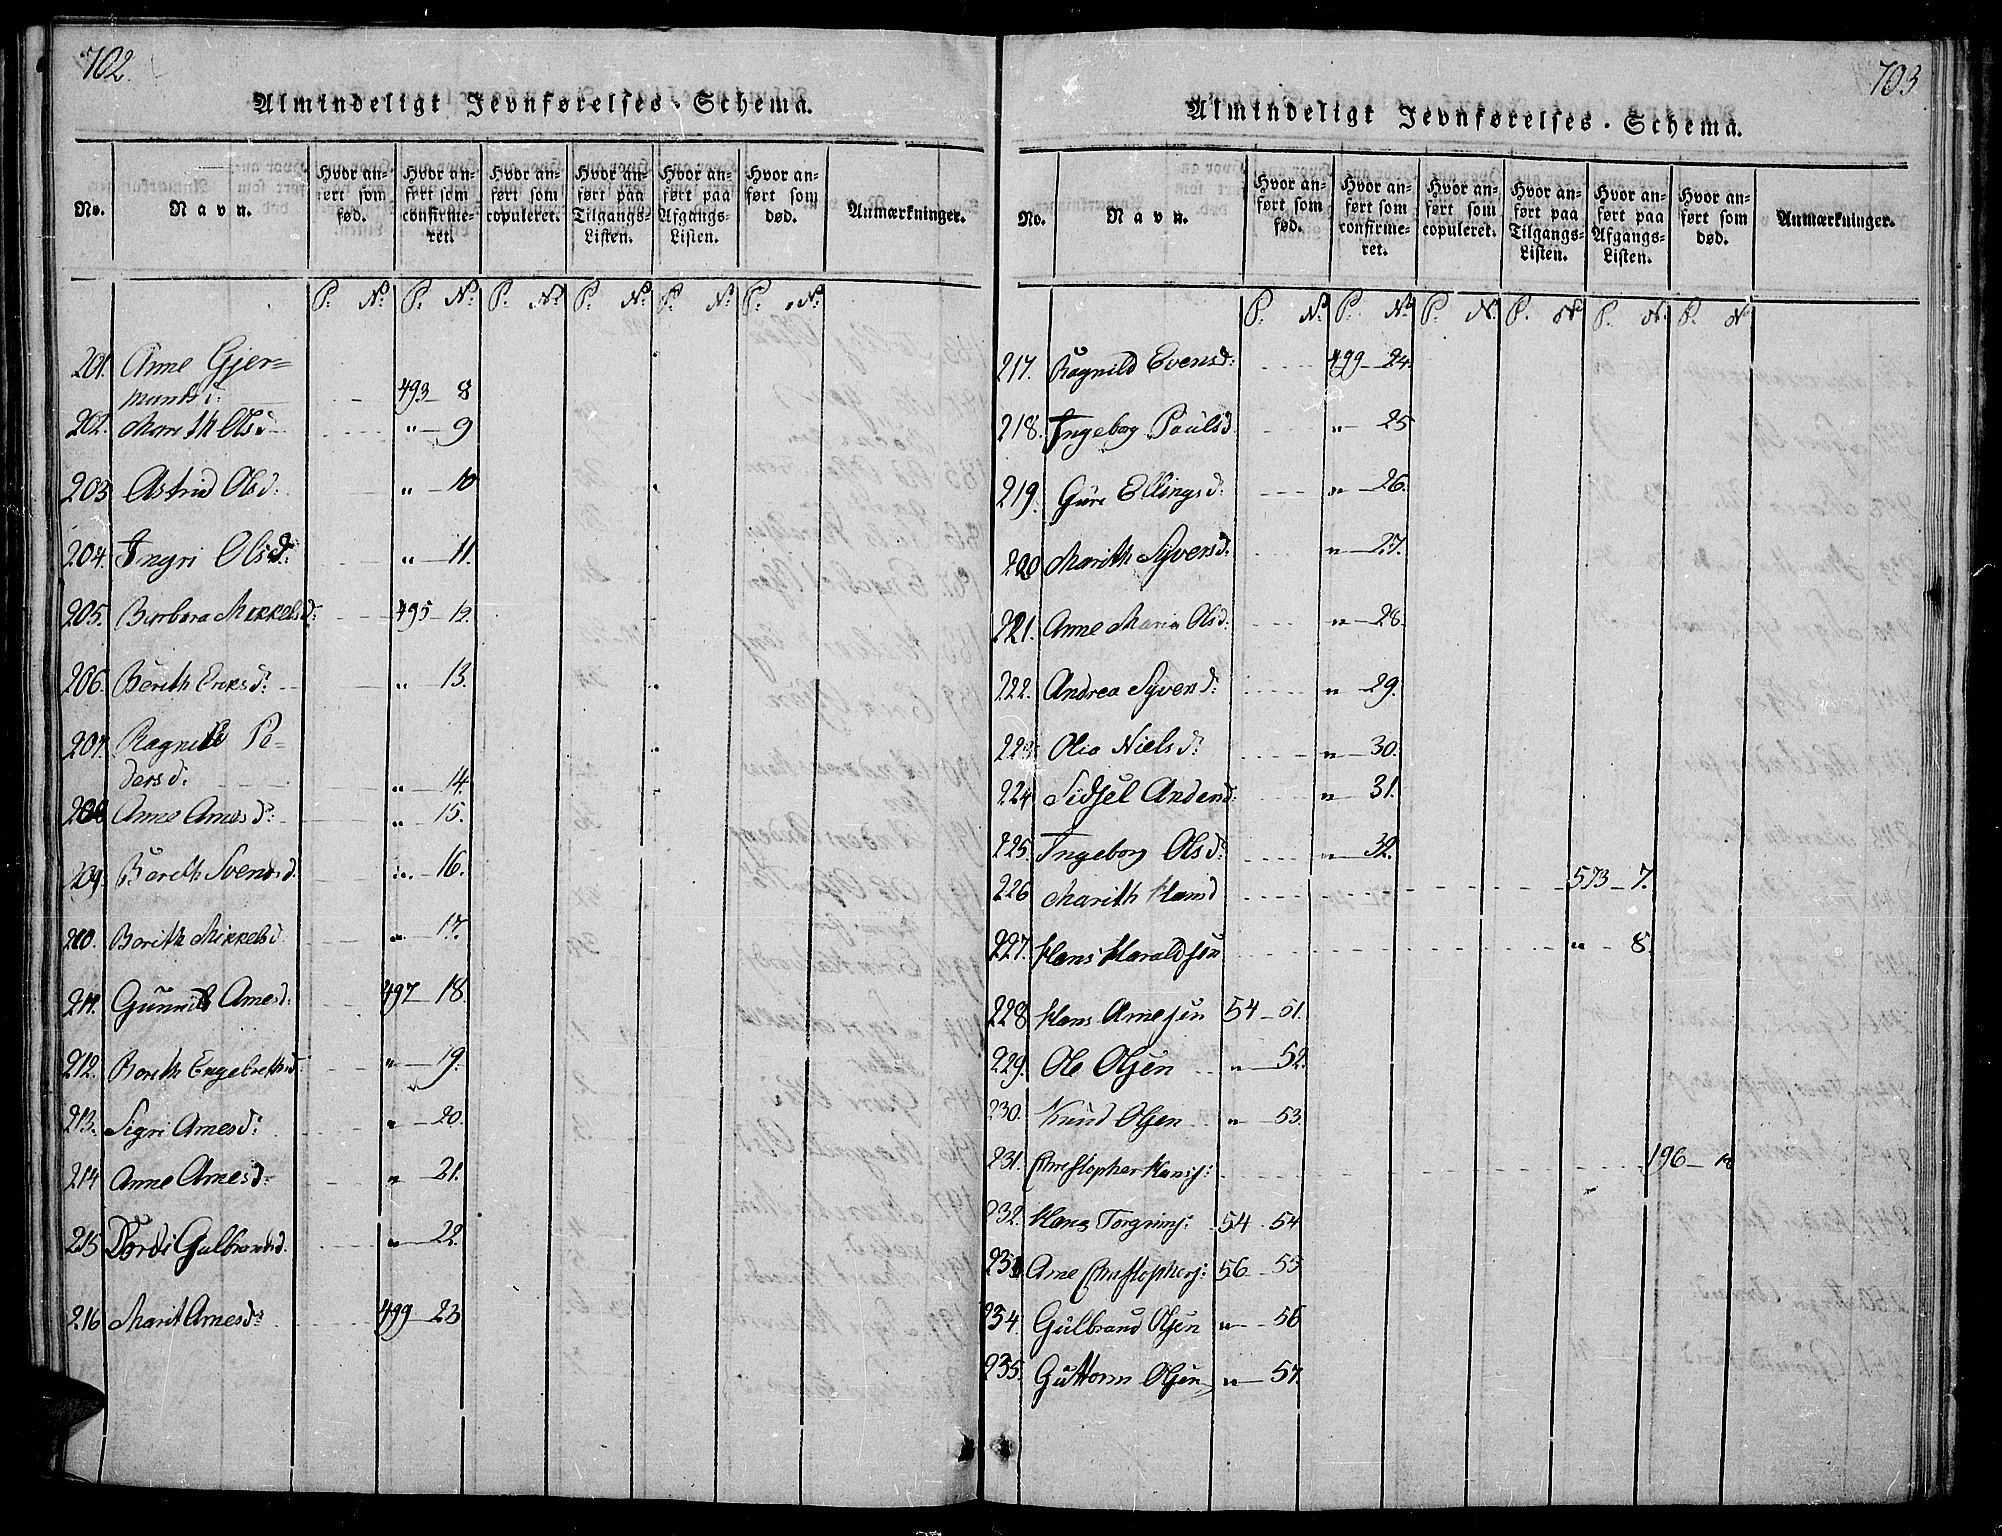 702.
Almindeligt Jevnførelses-Schema.
No. Navn. Hvor anført som fød. Hvor anført som confirmeret. Hvor anført som copuleret. Hvor anført paa Tilgangs-Listen. Hvor anført paa Afgangs-Listen. Hvor anført som død. Anmærkninger.
P. No P. No P. No P. No P. No P. No
201. Anne Gjer=
mundsd: 493 – 8
202. Marith Olsd „ – 9
203 Astrid Olsd: „ – 10
204. Ingri Olsd: „ – 11.
205. Barbara Mikkelsd: 495 – 12.
206. Berith Eriksd: „ 13.
207. Ragnild Pe=
dersd: „ – 14.
208 Anne Arnesd: „ – 15.
209. Berith Svendsd. „ – 16.
210. Berith Mikkelsd „ – 17.
211. Gunnild Arnesd: 497 – 18.
212. Berith Engebrethsd: „ – 19.
213. Sigri Arnesd: „ – 20.
214 Anne Arnesd: „ – 21.
215 Dordi Gulbrandsd. „ – 22.
216 Marit Arnesd: 499 – 23
703
Almindeligt Jevnførelses-Schema.
No. Navn. Hvor anført som fød. Hvor anført som confirmeret. Hvor anført som copuleret. Hvor anført paa Tilgangs-Listen. Hvor anført paa Afgangs-Listen. Hvor anført som død. Anmærkninger.
P. No P. No P. No P. No P. No P. No
217. Ragnild Evensd: 499 – 24.
218. Ingeborg Poulsd „ – 25
219. Guri Ellingsd: „ – 26.
220 Marith Syversd: „ – 27.
221. Anne Maria Olsd: „ – 28.
222. Andrea Syversd: „ – 29.
223. Olia Nielsd: „ – 30.
224 Sidsel Andersd: „ – 31.
225. Ingeborg Olsd: „ – 32.
226 Marith Hansd 573 – 7.
227. Hans Haraldsen „ – 8
228 Hans Arnesen 54 – 51.
229. Ole Olsen „ – 52.
230. Knud Olsen „ – 53.
231. Christopher Hansf: 196 –
232. Hans Torgrimf: 54 – 54
233 Arne Christopherf: 56 – 55
234. Gulbrand Olsen „ – 56
235. Guttorm Olsen „ – 57.